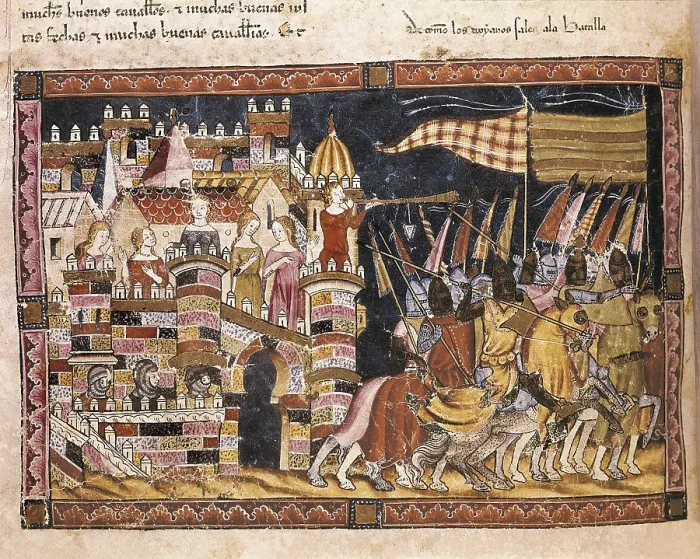 much̃s buenos cavall̃os. ⁊ muchas buenas ius
tas fechas ⁊ muchas buenas cavall̃ias. Et
De cõmo los troyanos salẽ ala batalla